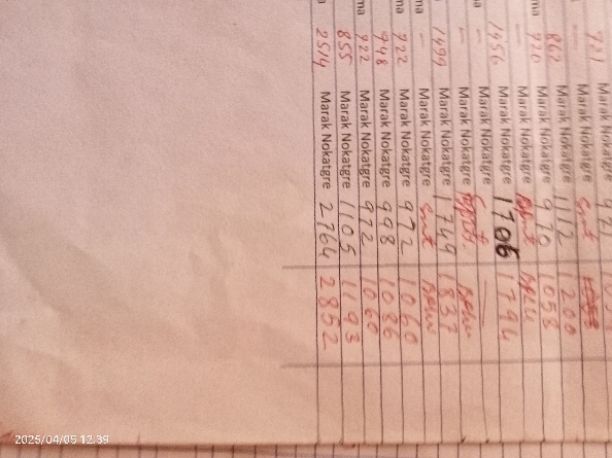 921 Marak Nokatgre 971
— Marak Nokatgre
862 Marak Nokatgre 1112 1200
920 Marak Nokatgre 970 1058
ma — Marak Nokatgre
1456 Marak Nokatgre 1706 1794
— Marak Nokatgre
— Marak Nokatgre
1499 Marak Nokatgre 1749 1837
— Marak Nokatgre
ma 922 Marak Nokatgre 972 1060
948 Marak Nokatgre 998 1086
ma 922 Marak Nokatgre 972 1060
855 Marak Nokatgre 1105 1193
a 2514 Marak Nokatgre 2764 2852
2025/04/05 12:39